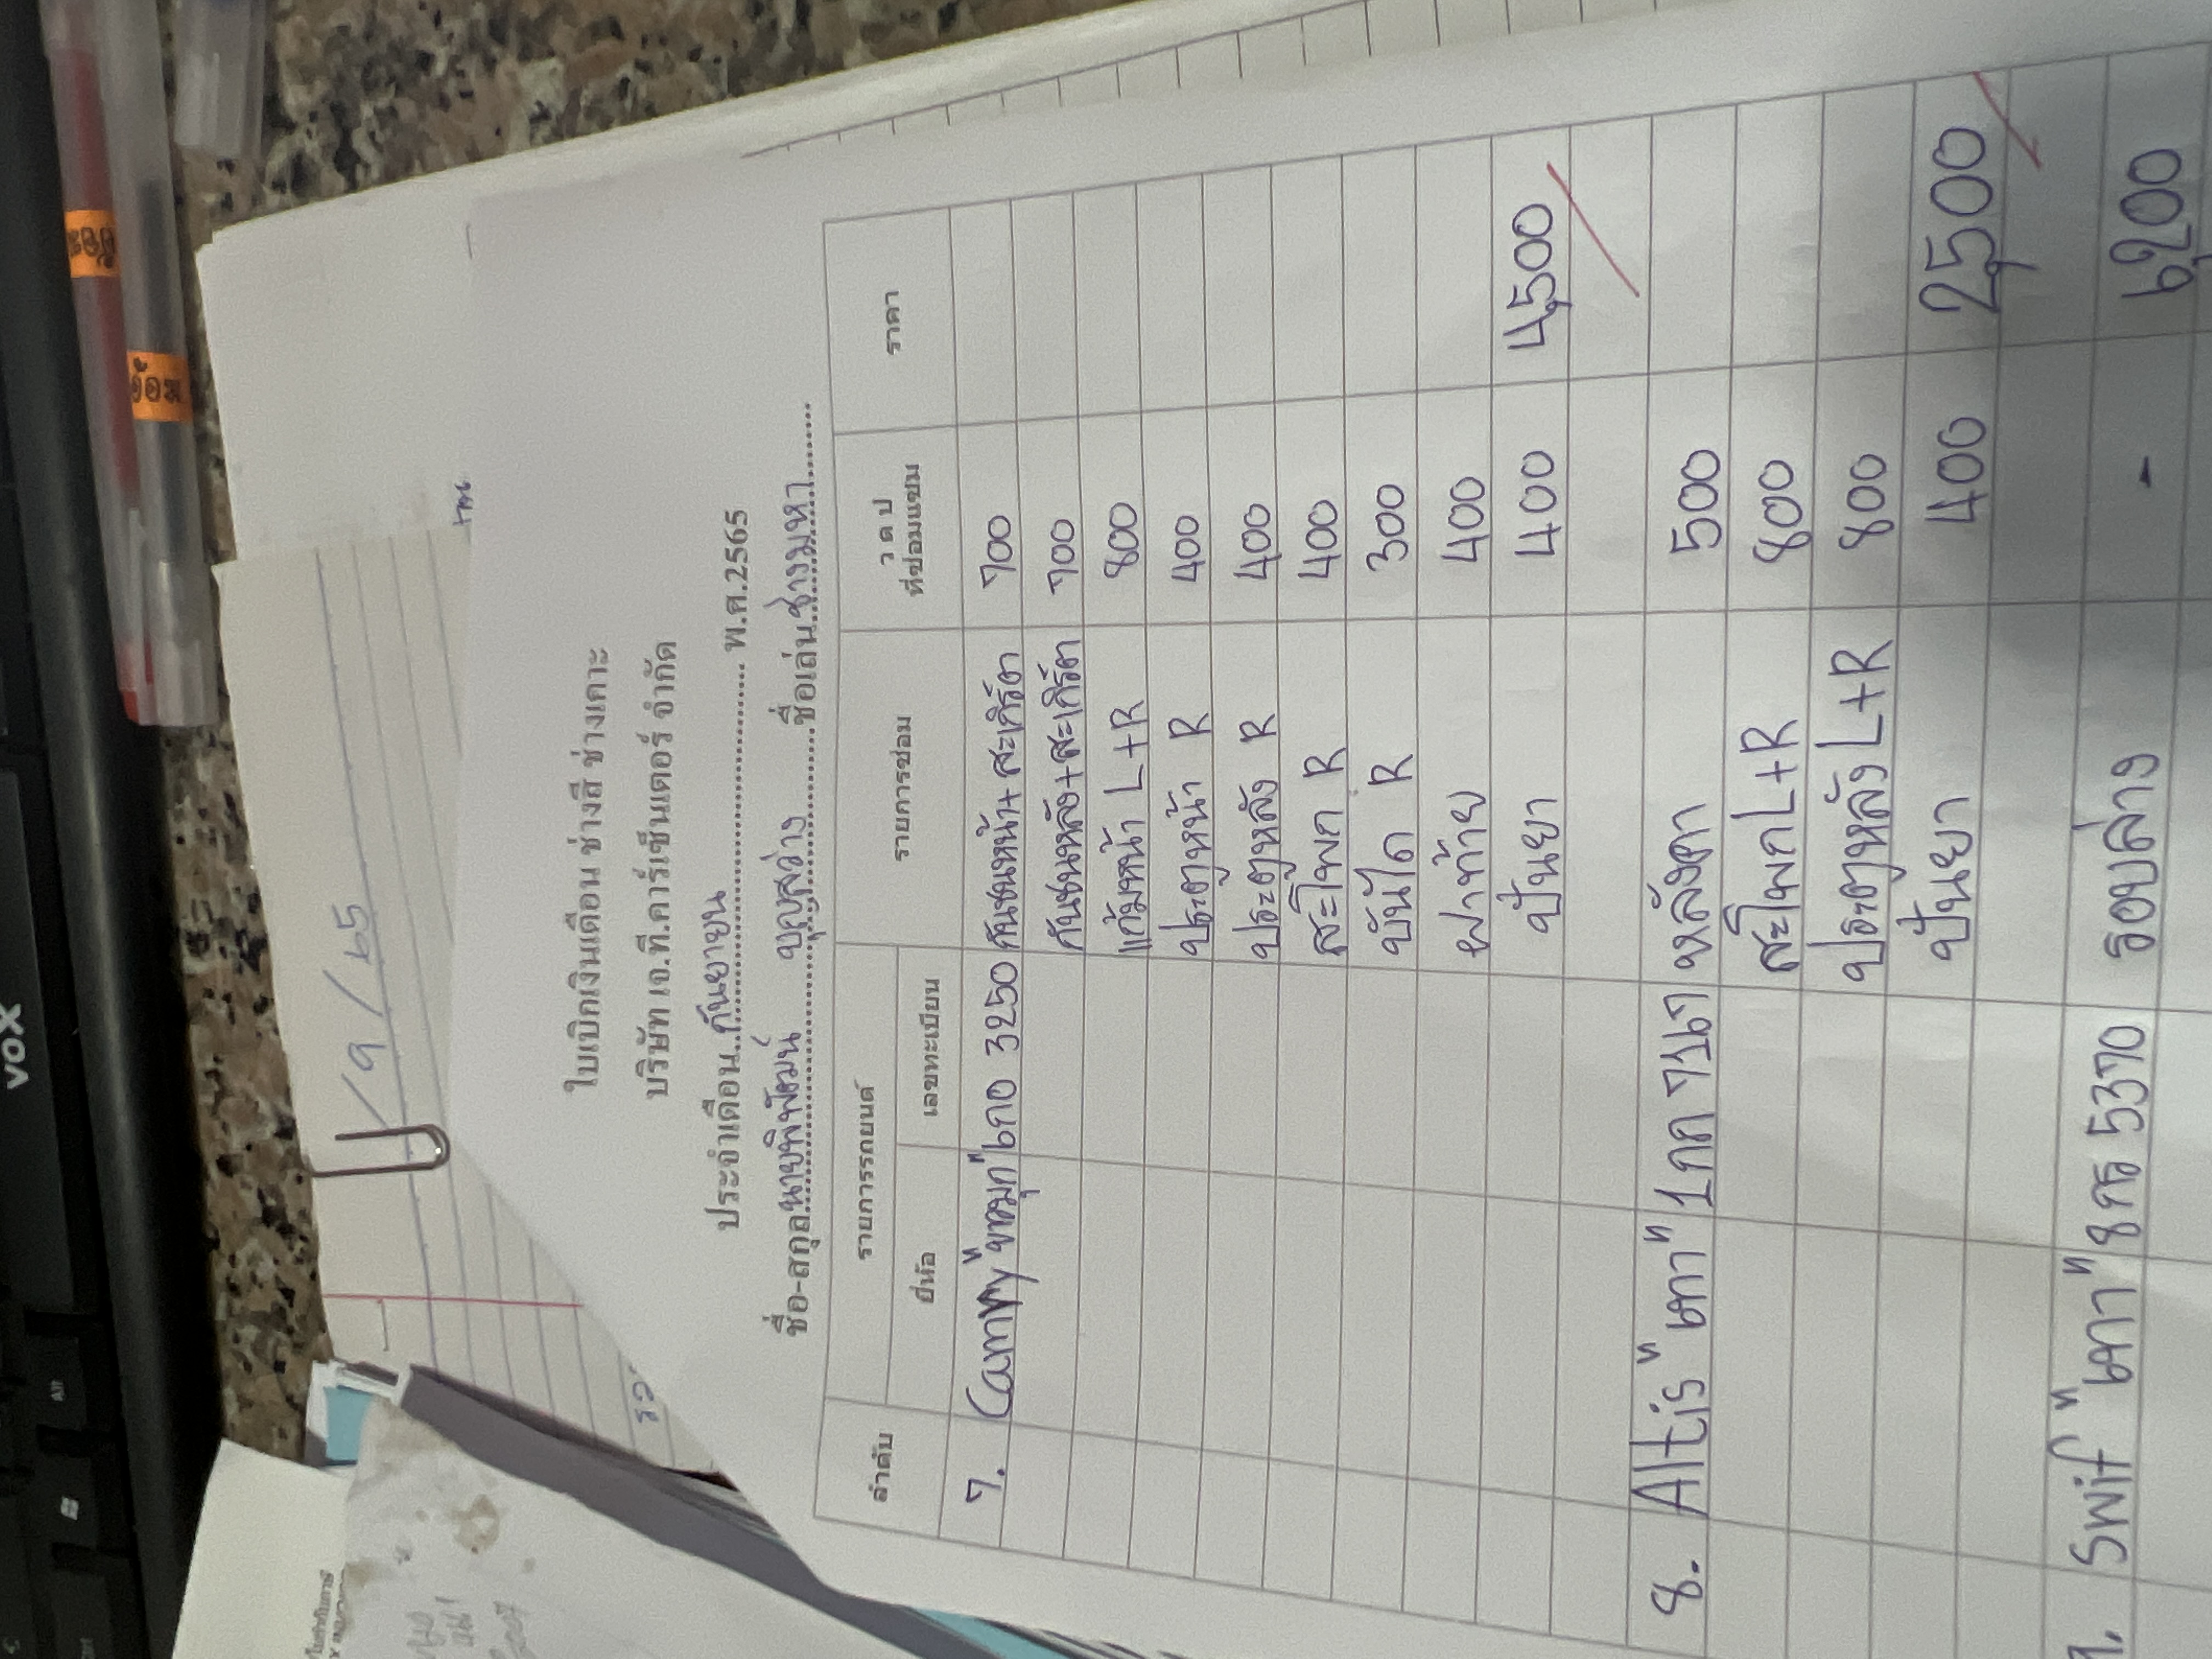 ใบเบิกเงินเดือน ช่างสี ช่างเคาะ
บริษัท เจ.ที.คาร์เซ็นเตอร์ จำกัด
ประจำเดือน..กันยายน.......... พ.ศ.2565
ชื่อ-สกุล นายพิพัฒน์ บุญสว่าง ชื่อเล่น ช่างมหา
ลำดับ รายการรถยนต์ รายการซ่อม ว ด ป ที่ซ่อมแซม ราคา
ยี่ห้อ เลขทะเบียน
7. Camry "ขาวมุก" 6กอ 3250 กันชนหน้า+สะเกิร์ต 700
กันชนหลัง+สะเกิร์ต 700
แก้มหน้า L+R 800
ประตูหน้า R 400
ประตูหลัง R 400
สะโพก R 400
บันได R 300
ฝาท้าย 400
ปั่นยา 400 4,500
8. Altis "เทา" 1กก หลังคา 500
สะโพก L+R 800
ประตูหลัง L+R 800
ปั่นยา 400 2,500
Swif "เทา" 8กธ 5370 รอบล่าง - 6,200
/9/65
VOX
Alt
อ้อม